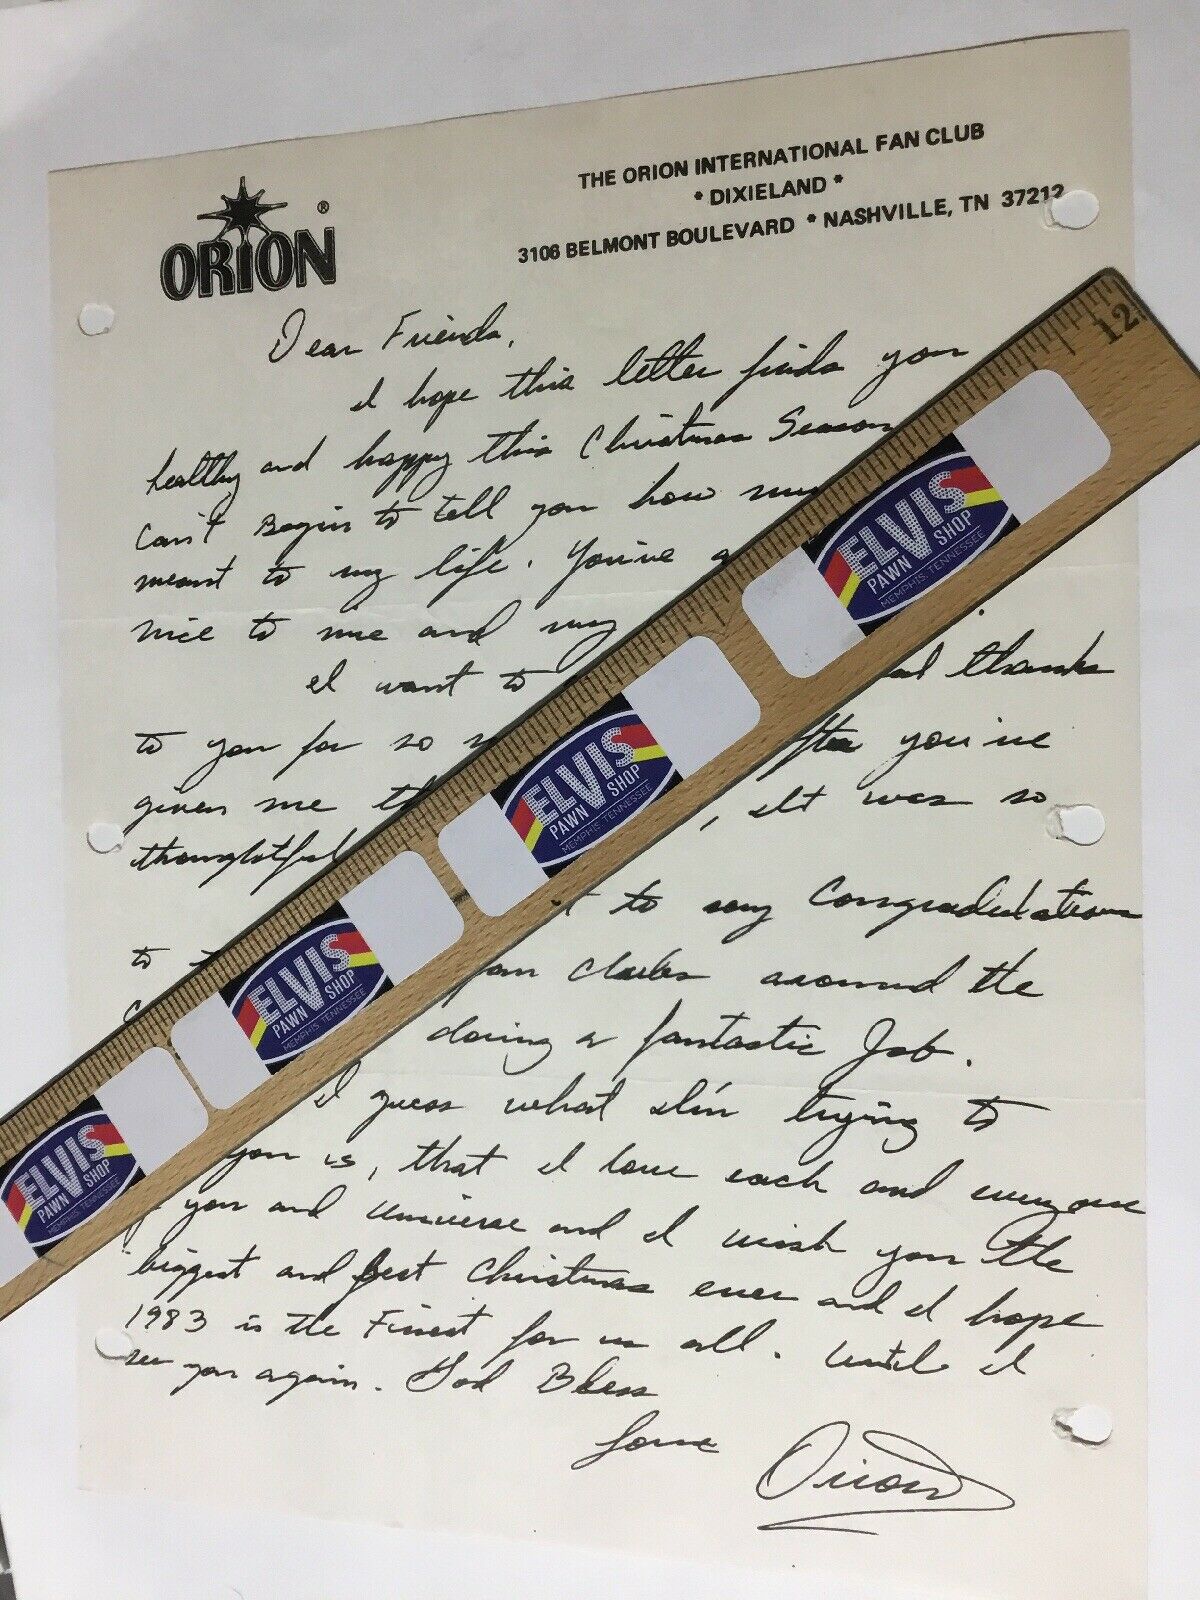 ORION ®
THE ORION INTERNATIONAL FAN CLUB
* DIXIELAND *
3106 BELMONT BOULEVARD * NASHVILLE, TN 37212
Dear Friends,
I hope this letter finds you
healthy and happy this Christmas Season
Can't Begin to tell you how
meant to my life. You've
nice to me and my
I want to thanks
to you for so you've
given me It was so
thoughtful
to say Congradulations
to fan clubs around the
doing a fantastic Job.
I guess what I'm trying to
you is, that I love each and everyone
you and Universe and I wish you the
biggest and Best Christmas ever and I hope
1983 is the Finest for us all. Until I
see you again. God Bless
Love Orion
12
ELVIS
PAWN SHOP
MEMPHIS, TENNESSEE
ELVIS
PAWN SHOP
MEMPHIS, TENNESSEE
ELVIS
PAWN SHOP
MEMPHIS, TENNESSEE
ELVIS
PAWN SHOP
MEMPHIS, TENNESSEE